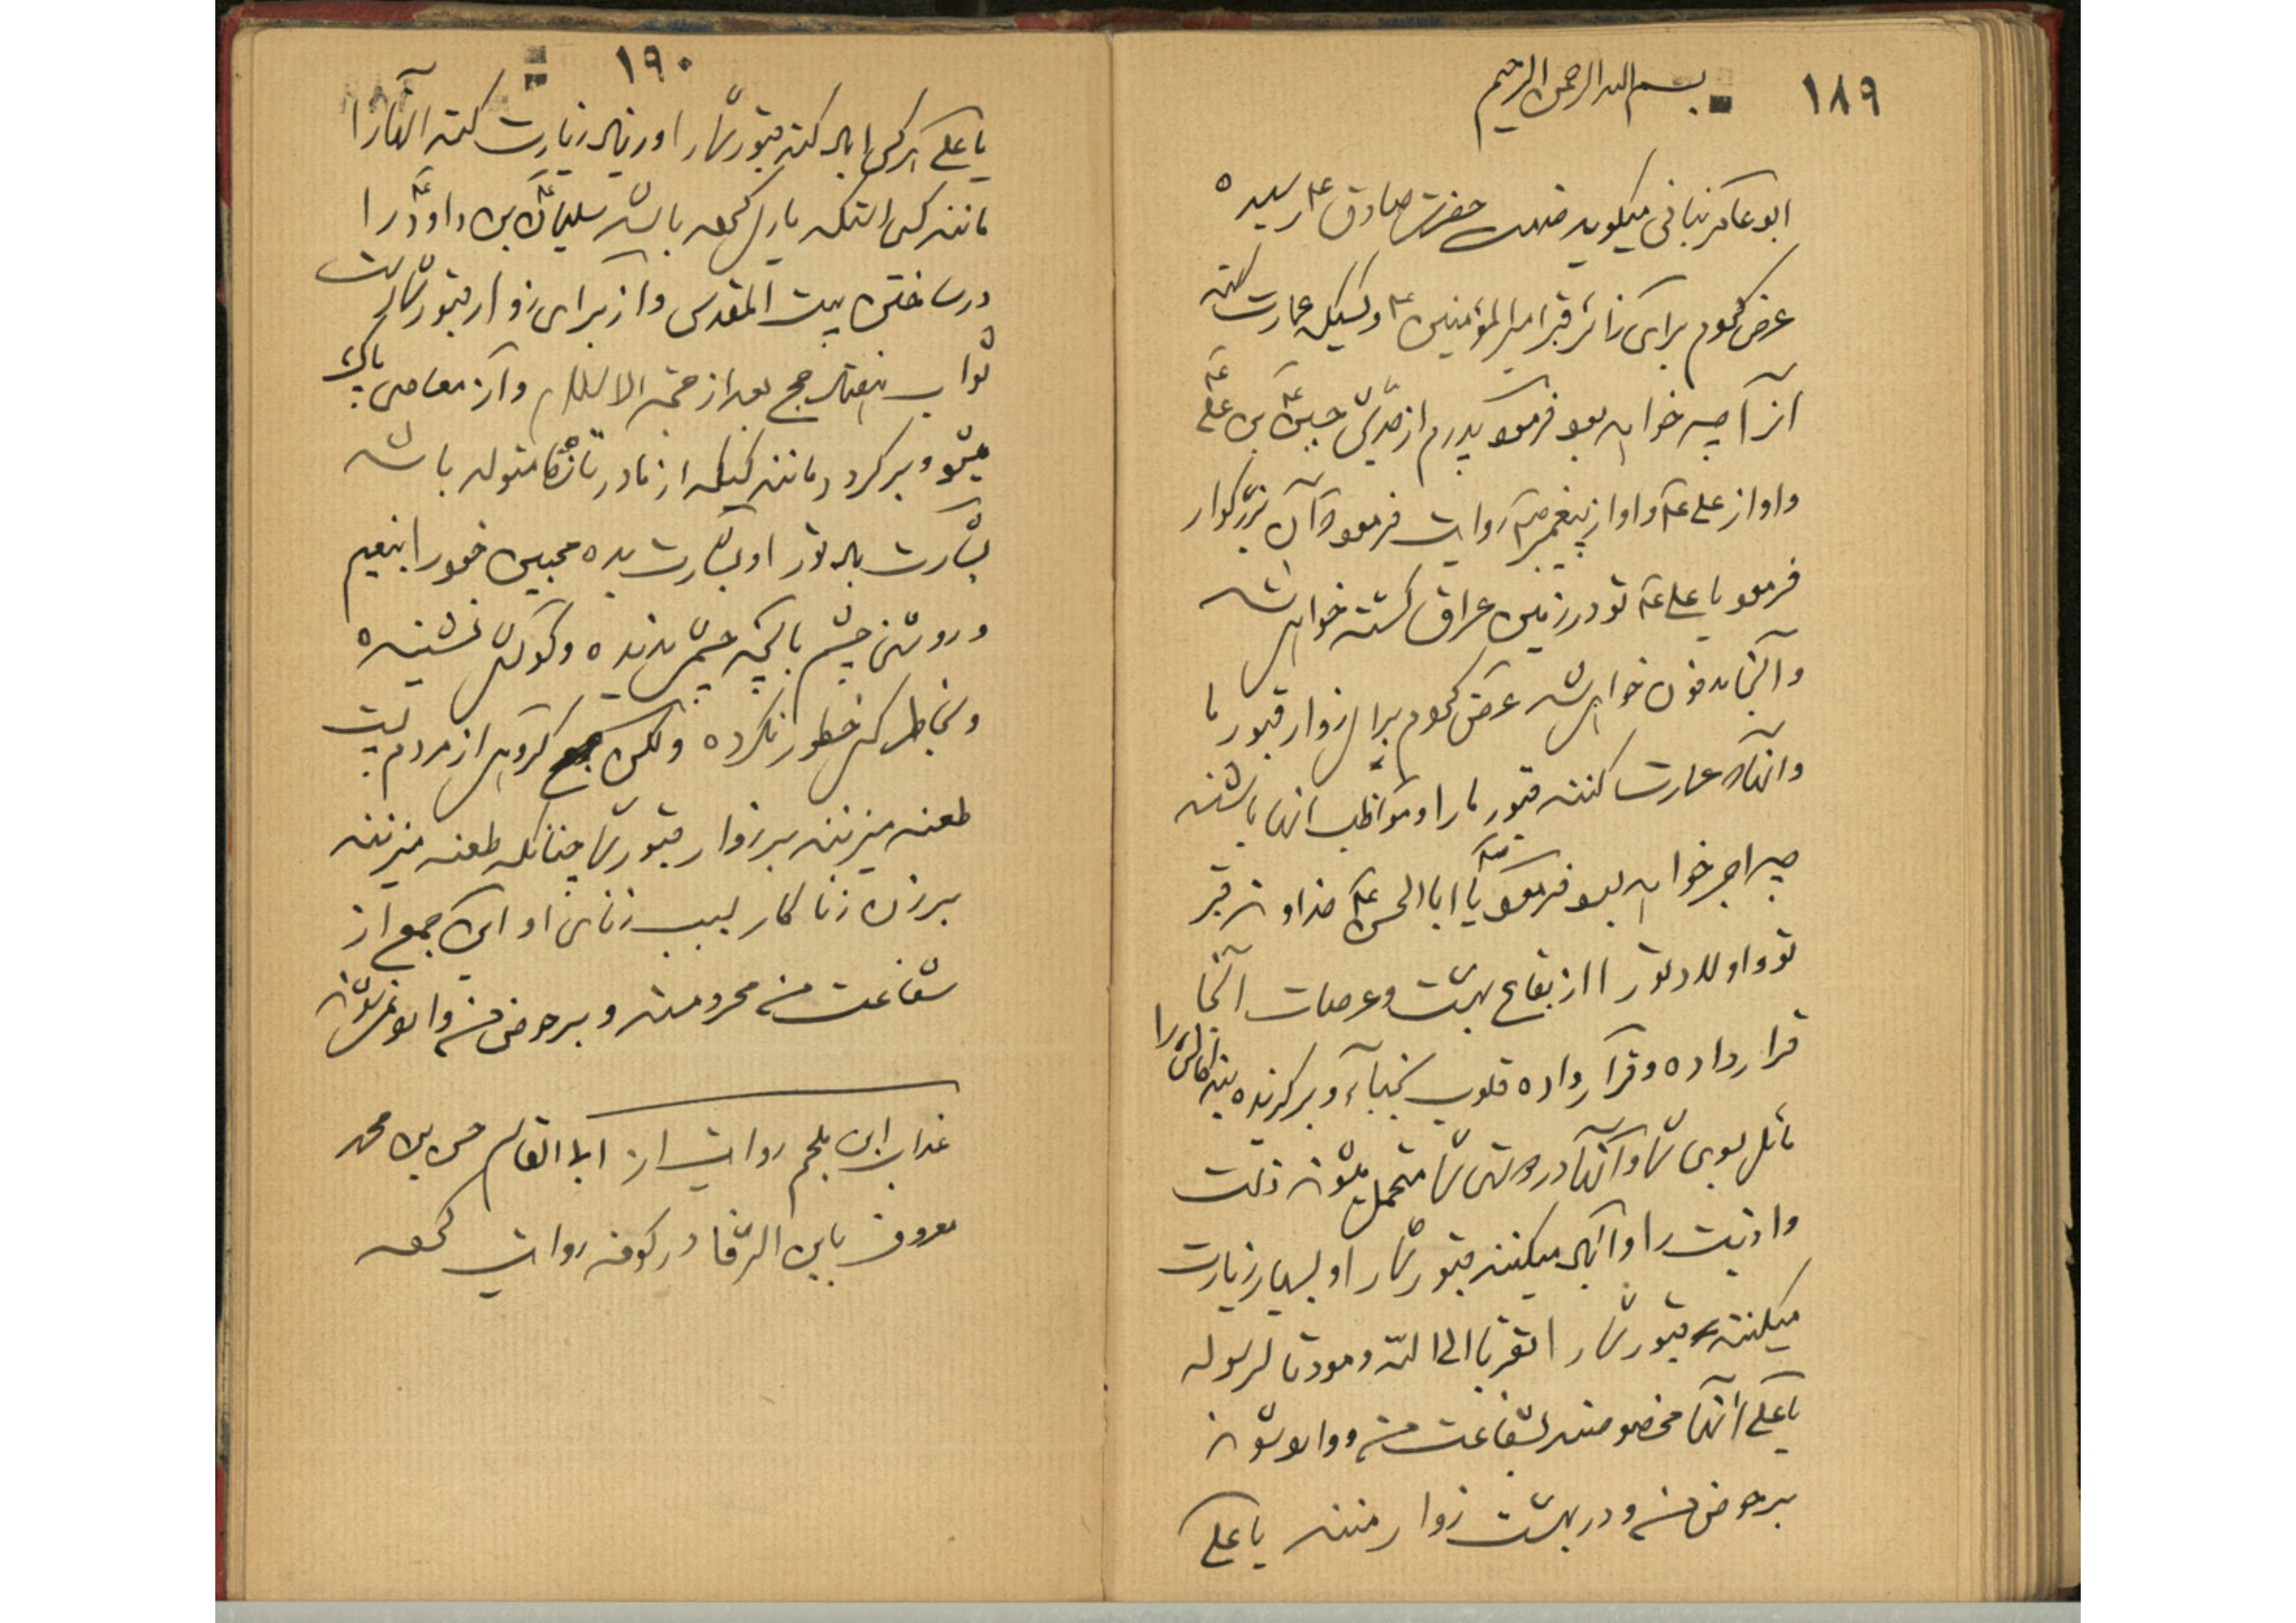 ۱۸۹
بسم الله الرحمن الرحیم
ابو عامر بنانی میگوید خدمت حضرت صادق ع رسیده
عرض نمودم برای زائر قبر امیرالمؤمنین ع و کسیکه عمارت کند
آنرا چه خواهد بود فرمود پدرم از جدش حسین ع بن علی ع
و او از علی ع و او از پیغمبر ص روایت فرموده آن بزرگوار
فرمود یا علی ع تو در زمین عراق کشته خواهی شد
و آنجا مدفون خواهی شد عرض نمودم برای زوار قبور ما
و آنهاکه عمارت کنند قبور ما را و مواظب آنها باشند
چه اجر خواهد بود فرمود ص یا ابا الحسن ع خداوند قبر
تو و اولاد تو را از بقاع بهشت و عرصات آنجا
قرار داده و قرار داده قلوب نجباء و برگزیده بندگانش را
مائل بسوی شما و آنها در دوستی شما متحمل میشوند ذلت
و اذیت را و آباد میکنند قبور شما را و بسیار زیارت
میکنند قبور شما را تقربا الی الله و مودتا لرسوله
یا علی آنها مخصوصند بشفاعت من و وارد شوند
بر حوض من و در بهشت زوار منند یا علی
۱۹۰
یا علی هر کس آباد کند قبور شما را و زیاد زیارت کند آنها را
مانند کسی استکه یاری نموده باشد سلیمان ع بن داود ع را
در ساختن بیت المقدس و از برای زوار قبور شما است
ثواب هفتاد حج بعد از حجة الاسلام و از معاصی پاک
میشود و برگردد مانند کسیکه از مادر تازه متولد باشد
بشارت باد تو را و بشارت بده محبین خود را بنعیم
و روشنی چشم بآنچه چشمی ندیده و گوشی نشنیده
و بخاطر کسی خطور نکرده ولکن جمع گروهی از مردم پست
طعنه میزنند بر زوار قبور شما چنانکه طعنه میزنند
بر زن زناکار بسبب زنای او این جمع از
شفاعت من محرومند و بر حوض من وارد نمیشوند
عذاب ابن ملجم روایت از ابا القاسم حسن بن محمد
معروف بابن الرفا در کوفه روایت نموده